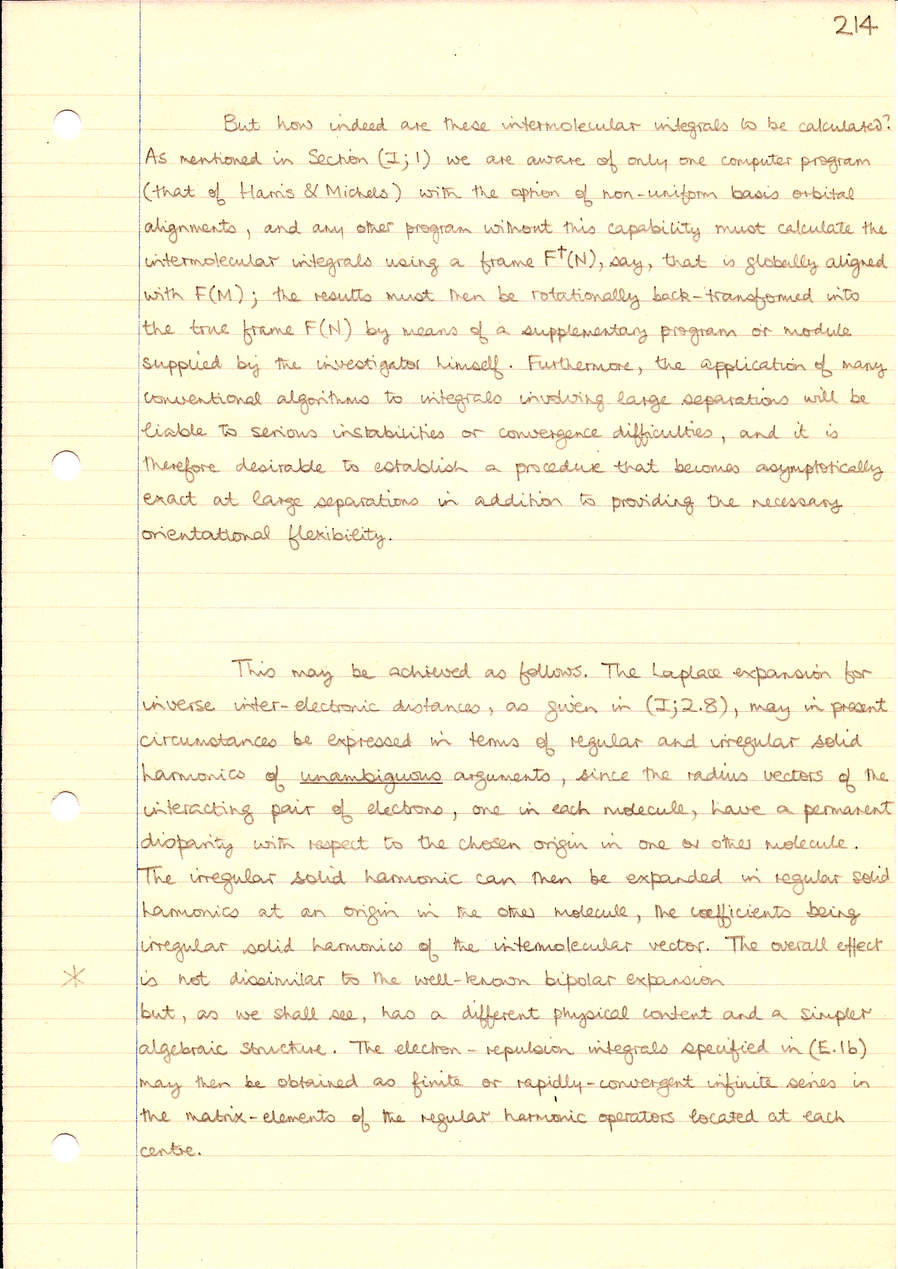 214
But how indeed are these intermolecular integrals to be calculated?
As mentioned in Section (I;1) we are aware of only one computer program
(that of Harris & Michels) with the option of non-uniform basis orbital
alignments, and any other program without this capability must calculate the
intermolecular integrals using a frame F†(N), say, that is globally aligned
with F(M); the results must then be rotationally back-transformed into
the true frame F(N) by means of a supplementary program or module
supplied by the investigator himself. Furthermore, the application of many
conventional algorithms to integrals involving large separations will be
liable to serious instabilities or convergence difficulties, and it is
therefore desirable to establish a procedure that becomes asymptotically
exact at large separations in addition to providing the necessary
orientational flexibility.
This may be achieved as follows. The Laplace expansion for
inverse inter-electronic distances, as given in (I;2.8), may in present
circumstances be expressed in terms of regular and irregular solid
harmonics of unambiguous arguments, since the radius vectors of the
interacting pair of electrons, one in each molecule, have a permanent
disparity with respect to the chosen origin in one or other molecule.
The irregular solid harmonic can then be expanded in regular solid
harmonics at an origin in the other molecule, the coefficients being
irregular solid harmonics of the intermolecular vector. The overall effect
* is not dissimilar to the well-known bipolar expansion
but, as we shall see, has a different physical content and a simpler
algebraic structure. The electron-repulsion integrals specified in (E.1b)
may then be obtained as finite or rapidly-convergent infinite series in
the matrix-elements of the regular harmonic operators located at each
centre.